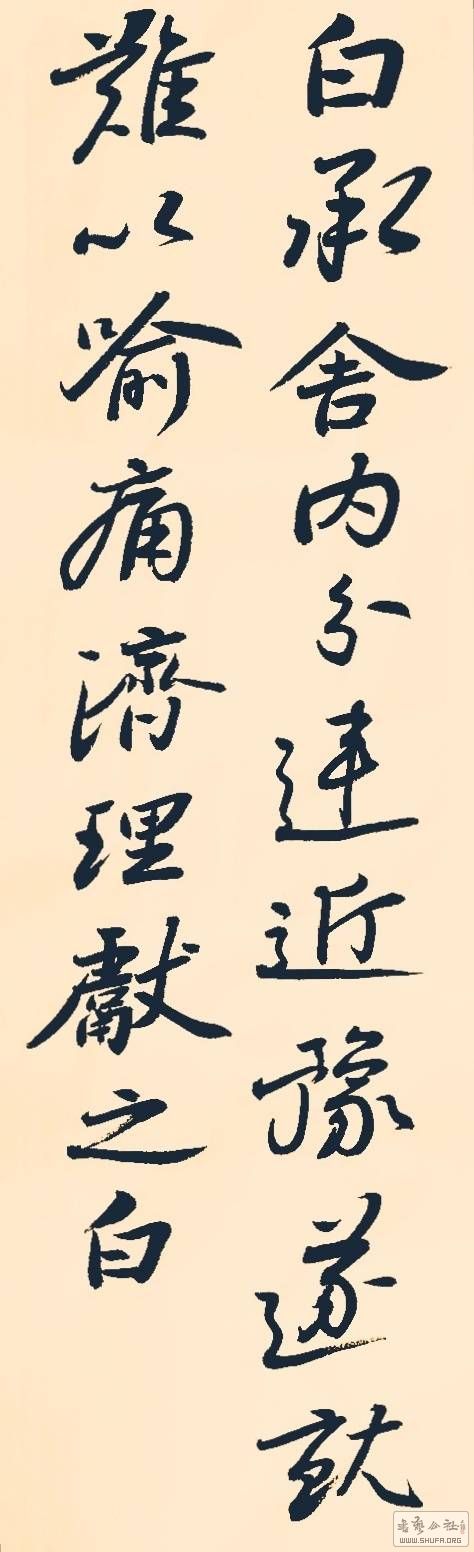 白承舍内分違近豫遂就
難以喻痛濟理獻之白
書藝公社
WWW.SHUFA.ORG